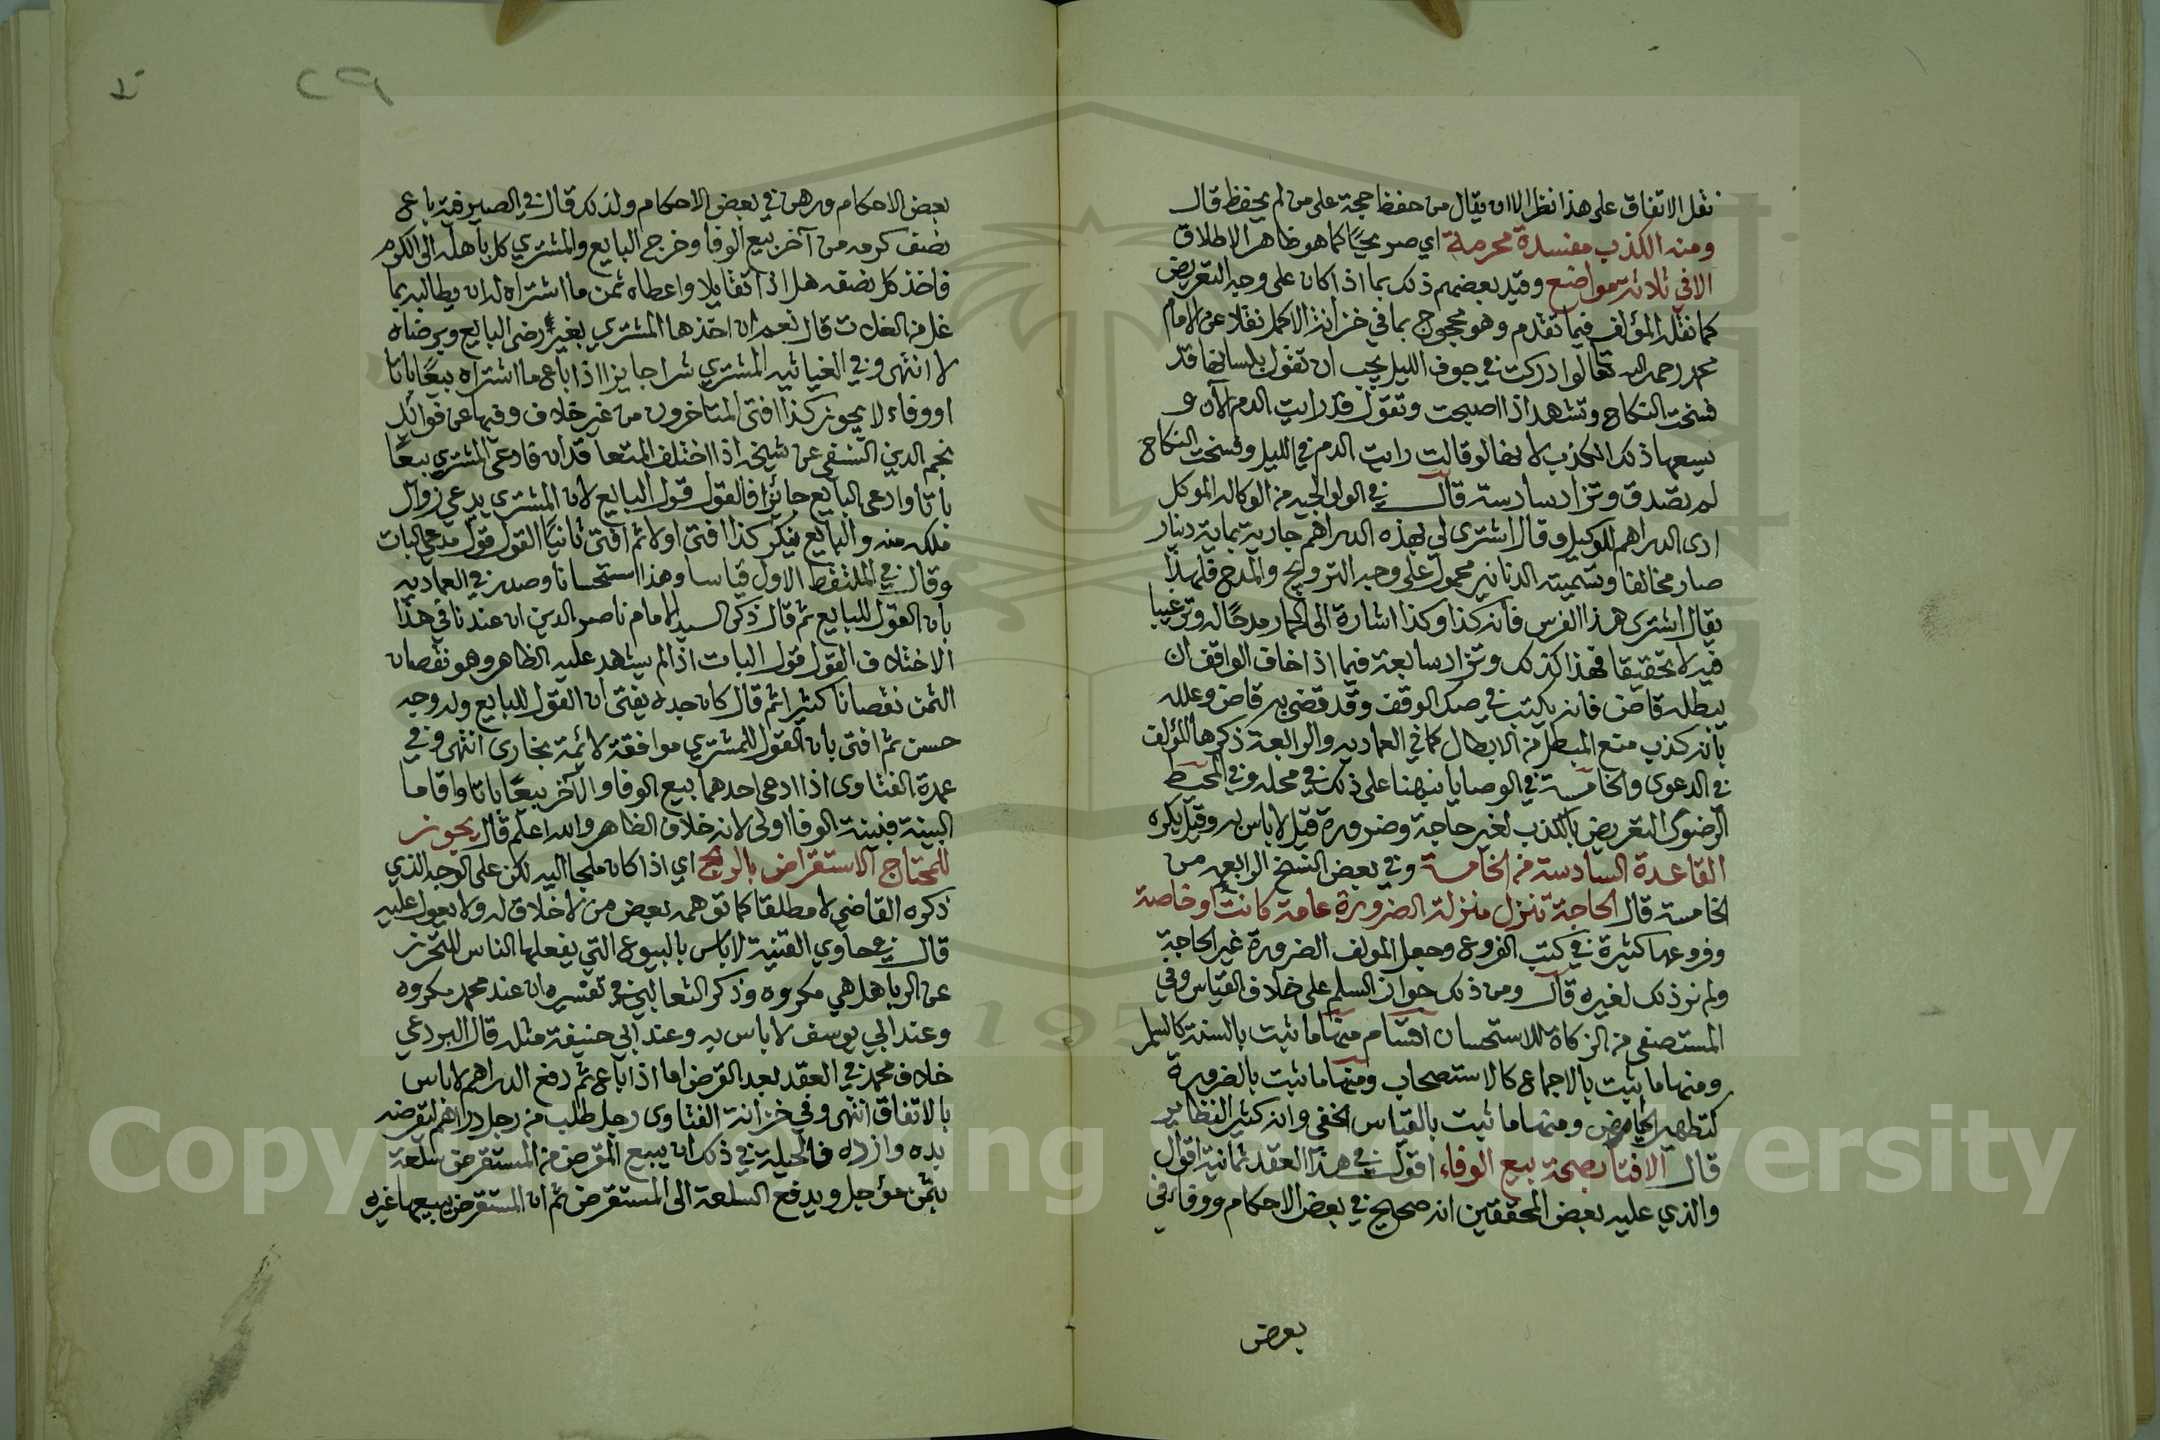 نقل الاتفاق على هذا نظر الا ان يقال من حفظ حجة على من لم يحفظ قال
ومنه الكذب مفسدة محرمة اي صريحًا كما هو ظاهر الاطلاق
الا في ثلاثة مواضع وقيد بعضهم ذلك بما اذا كان على وجه التعريض
كما نقله المؤلف فيما تقدم وهو محجوج بما في خزانة الاكمل نقلا عن الامام
محمد رحمه الله تعا لو ادركت في جوف الليل يجب ان تقول بلسانها قد
فسخت النكاح وتشهد اذا اصبحت وتقول قد رايت الدم الآن و
يسعها ذلك الكذب لانها لو قالت رايت الدم في الليل وفسخت النكاح
لم تصدق وتزاد سادسة قال في الولوالجيه من الوكاله الموكل
ادى الدراهم للوكيل وقال اشترى لي بهذه الدراهم جارية بماية دينار
صار مخالفا وتسمية الدنانير محمول على وجه الترويج والمدح فلهذا
يقال اشترى هذا الفرس فانه كذا وكذا اشارة الى الحمار مدحًا له وترغيبا
فيه لا تحقيقا فهذا كذلك وتزاد سابعة فيما اذا خاف الواقف ان
يبطله قاض فانه يكتب في صك الوقف وقد قضى به قاض وعلله
بانه كذب منع المبطل من الابطال كما في العماديه والرابعة ذكرها المؤلف
في الدعوى والخامسة في الوصايا نبهنا على ذلك في محله وفي المحيط
الرضوى التعريض بالكذب لغير حاجة وضرورة قيل لا باس به وقيل يكره
القاعدة السادسة من الخامسة وفي بعض النسخ الرابعه من
الخامسة قال الحاجة تنزل منزلة الضرورة عامة كانت او خاصة
وفروعها كثيرة في كتب الفروع وجعل المولف الضرورة غير الحاجة
ولم نر ذلك لغيره قال ومن ذلك جواز السلم على خلاف القياس وفي
المستصفى من الزكاة للاستحسان اقسام منها ما يثبت بالسنة كالسلم
ومنها ما يثبت بالاجماع كالاستصحاب ومنها ما يثبت بالضرورة
كتطهير الحياض ومنها ما ثبت بالقياس الخفي وانه كثير النظاير
قال الافتا بصحة بيع الوفاء اقول في هذا العقد ثمانية اقوال
والذي عليه بعض المحققين انه صحيح في بعض الاحكام ووفاء في
بعض
بعض الاحكام ورهن في بعض الاحكام ولذلك قال في الصيرفية باع
نصف كرمه من آخر بيع الوفا وخرج البايع والمشتري كل باهله الى الكرم
فاخذ كل نصفه هل اذا تقايلا واعطاه ثمن ما اشتراه له ان يطالبه بما
غل من الغلات قال نعم ان اخذها المشتري بغير رضى البايع وبرضاه
لا انتهى وفي الغياثيه المشتري شرا جايزا اذا باع ما اشتراه بيعًا باتا
او وفاء لا يجوز كذا افتى المتاخرون من غير خلاف وفيها عن فوائد
نجم الدين النسفي عن شيخه اذا اختلف المتعاقدان فادعى المشتري بيعًا
باتا وادعى البايع جائزا فالقول قول البايع لان المشتري يدعي زوال
ملكه منه والبايع ينكر كذا افتى اولا ثم افتى ثانيًا القول قول مدعي البات
وقال في الملتقط الاول قياسا وهذا استحسانا وصدر في العماديه
بان القول للبايع ثم قال ذكر السيد الامام ناصر الدين ان عندنا في هذا
الاختلاف القول قول البات اذا لم يشهد عليه الظاهر وهو نقصان
الثمن نقصانا كثيرا ثم قال كان جده يفتى ان القول للبايع وله وجه
حسن ثم افتى بان القول للمشتري موافقة لائمة بخارى انتهى وفي
عمدة الفتاوى اذا ادعى احدهما بيع الوفا والآخر بيعًا باتا واقاما
البينة فبينة الوفا اولى لانه خلاف الظاهر والله اعلم قال يجوز
للمحتاج الاستقراض بالربح اي اذا كان ملجا اليه لكن على الوجه الذي
ذكره القاضي لا مطلقا كما توهمه بعض من لا خلاق له ولا يعول عليه
قال في حاوي القنية لا باس بالبيوع التي يفعلها الناس للتحرز
عن الربا هل هي مكروه وذكر الثعالبي في تفسيره ان عند محمد مكروه
وعند ابي يوسف لا باس به وعند ابي حنيفة مثله قال البردعي
خلاف محمد في العقد بعد القرض اما اذا باع ثم دفع الدراهم لا باس
بالاتفاق انتهى وفي خزانة الفتاوى رجل طلب من رجل دراهم ليقرضه
بده وازده فالحيلة في ذلك ان يبيع المقرض من المستقرض سلعة
بثمن مؤجل ويدفع السلعة الى المستقرض ثم ان المستقرض يبيعها غيره
Copyright © King Saud University